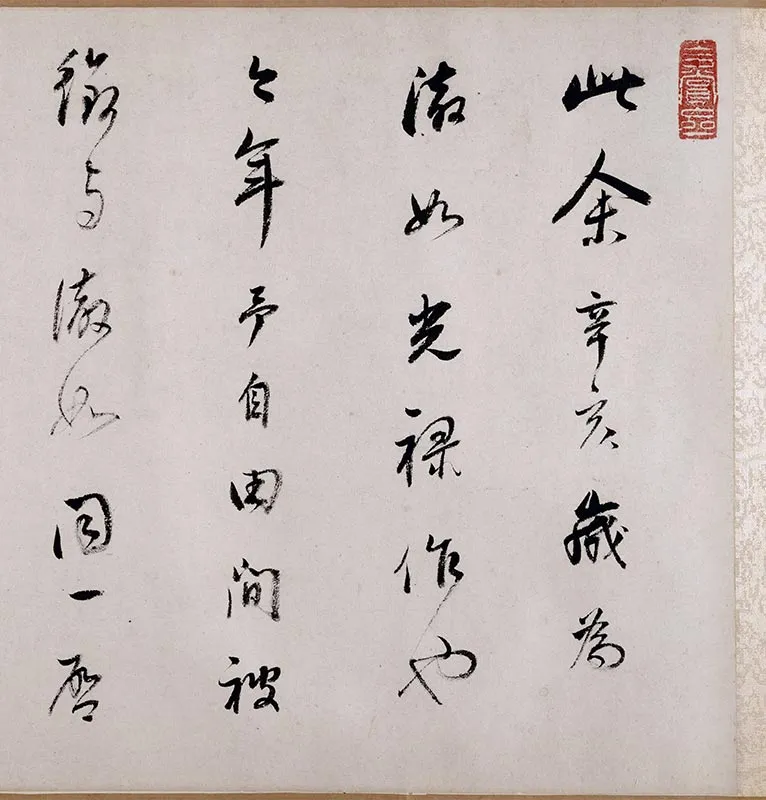 此余辛亥歲為
澈如光祿作也
今年予自田間被
徵與澈如同一啓